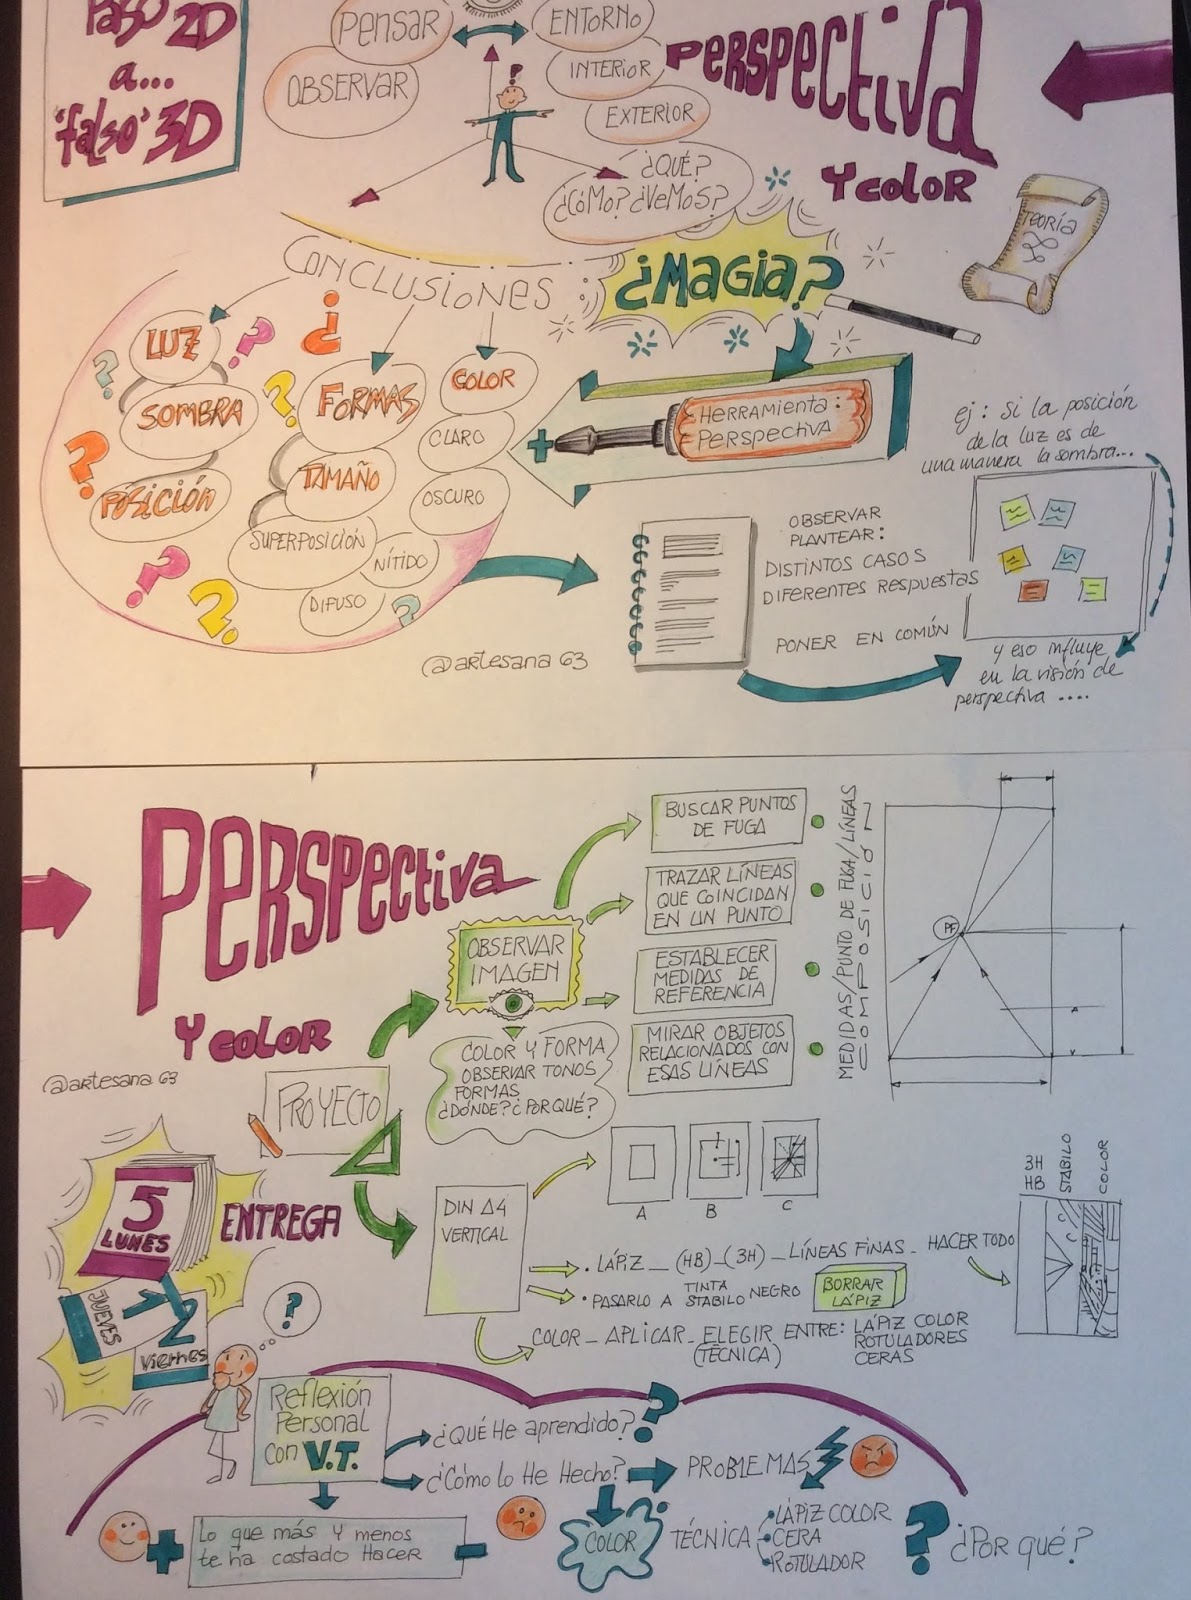 Paso 2D
a...
'falso' 3D
Pensar
OBSERVAR
ENTORNO
INTERIOR
EXTERIOR
¿QUÉ?
¿CÓMO? ¿VEMOS?
PERSPECTIVA
Y COLOR
TEORÍA
CONCLUSIONES:
¿MAGIA?
LUZ
SOMBRA
POSICIÓN
FORMAS
TAMAÑO
SUPERPOSICIÓN
COLOR
CLARO
OSCURO
NÍTIDO
DIFUSO
+
HERRAMIENTA:
PERSPECTIVA
ej: si la posición
de la luz es de
una manera la sombra...
OBSERVAR
PLANTEAR:
DISTINTOS CASOS
DIFERENTES RESPUESTAS
PONER EN COMÚN
y eso influye
en la visión de
perspectiva ....
@artesana 63
PERSPECTIVA
Y COLOR
@artesana 63
PROYECTO
OBSERVAR
IMAGEN
COLOR Y FORMA
OBSERVAR TONOS
FORMAS
¿DÓNDE? ¿PORQUÉ?
BUSCAR PUNTOS
DE FUGA
TRAZAR LÍNEAS
QUE COINCIDAN
EN UN PUNTO
ESTABLECER
MEDIDAS DE
REFERENCIA
MIRAR OBJETOS
RELACIONADOS CON
ESAS LÍNEAS
MEDIDAS/PUNTO DE FUGA/LÍNEAS
COMPOSICIÓN
PF
5
LUNES
ENTREGA
JUEVES
1
2
Viernes
DIN A4
VERTICAL
A
B
C
• LÁPIZ _ (HB)_(3H)_ LÍNEAS FINAS_ HACER TODO
• PASARLO A TINTA
STABILO NEGRO
BORRAR
LÁPIZ
COLOR_ APLICAR_ ELEGIR ENTRE: LÁPIZ COLOR
(TÉCNICA)
ROTULADORES
CERAS
3H
HB
STABILO
COLOR
?
Reflexión
Personal
con V.T.
¿QUÉ He aprendido?
¿CÓMO LO He Hecho?
PROBLEMAS
+
Lo que más y menos
te ha costado Hacer
-
COLOR
TÉCNICA
• LÁPIZ COLOR
• CERA
• ROTULADOR
? ¿POR qué?